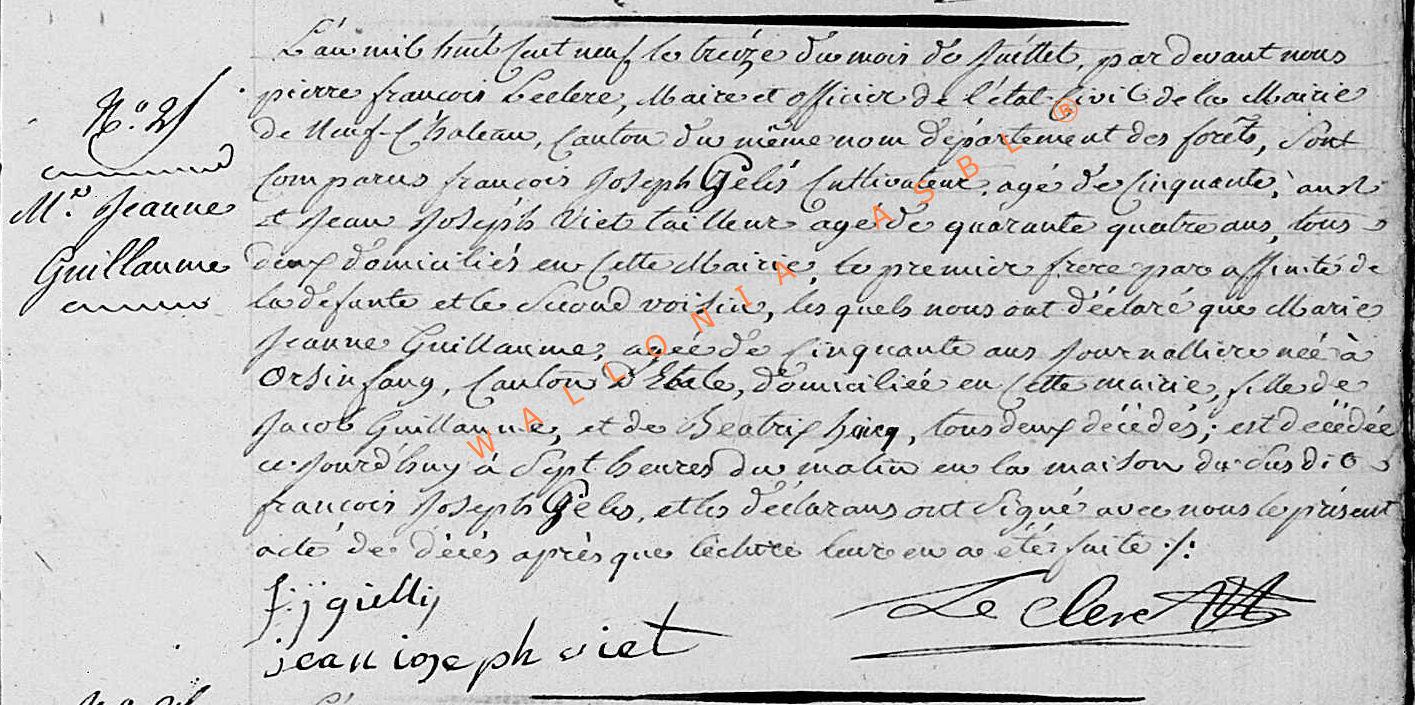 L'an mil huit cent neuf le treize du mois de Juillet, par devant nous
pierre françois Leclerc, Maire et officier de l'état-Civil de la Mairie
de Neuf-Chateau, Canton du même nom département des forêts, Sont
Comparus françois Joseph Gélis Cultivateur, agé de Cinquante, ans
et Jean Joséph Viet tailleur agé de quarante quatre ans, tous
deux domiciliés en Cette Mairie, le premier frere par affinité de
la défunte et le Second voisin, les quels nous ont déclaré que Marie
Jeanne Guillaume, agée de Cinquante ans Journalliere née à
Orsinfaing, Canton d'Etale, domiciliée en Cette mairie, fille de
Jacob Guillaume, et de Beatrix, tous deux décédés; est décédée
ce-jourd'huy à Sept heures du matin en la maison du Susdit
françois Joseph Gélis, et les déclarans ont Signé avec nous le présent
acte de décés après que lécture leur en a été faite ./.
N.o
M.e Jeanne
Guillaume
f: j gielly
jean ioseph viet
Le Clerc
WALLONIA ASBL ®